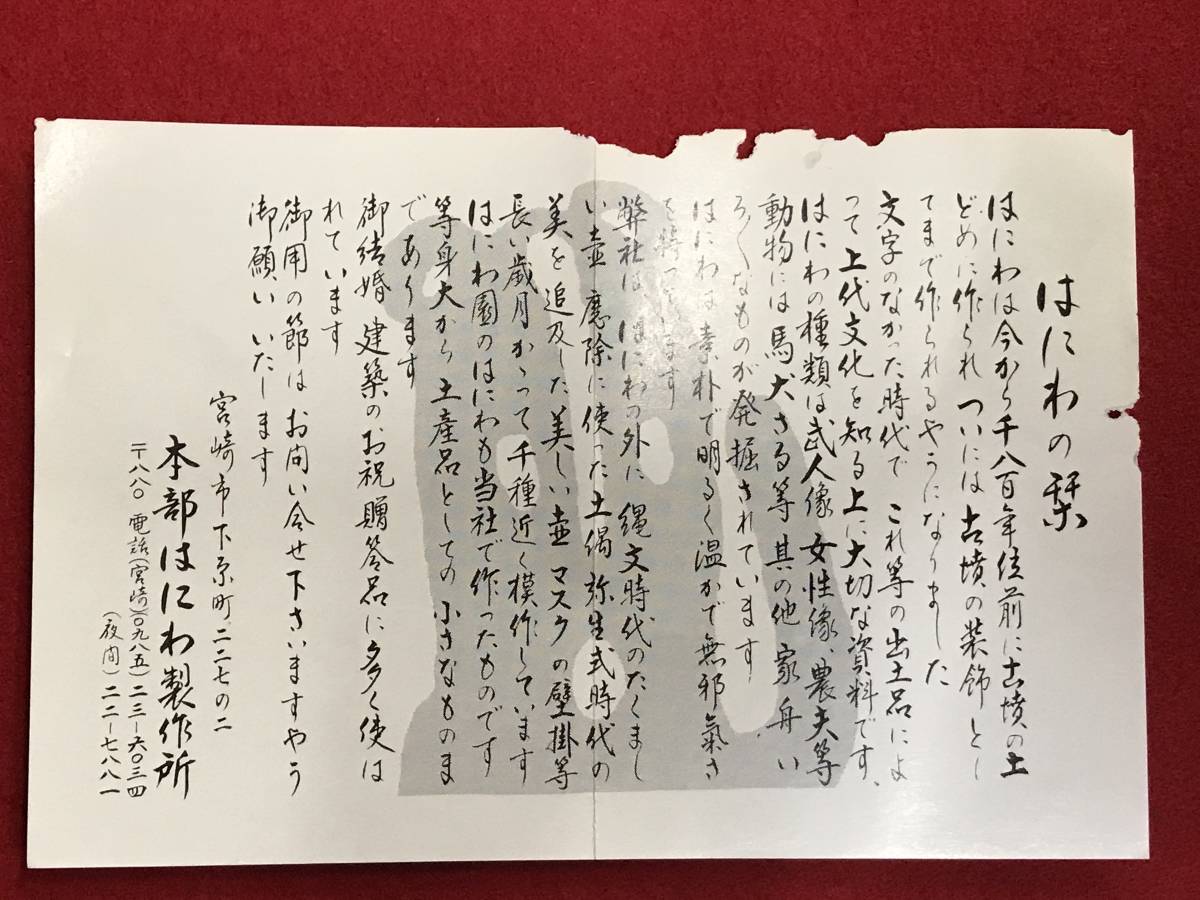 はにわの栞
はにわは今から千八百年位前に古墳の土
どめに作られ ついには古墳の装飾とし
てまで作られるやうになりました
文字のなかった時代で これ等の出土品によ
って上代文化を知る上に大切な資料です、
はにわの種類は武人像 女性像、農夫等
動物には馬犬さる等 其の他 家 舟 い
ろくなものが発掘されています
はにわは素朴で明るく温かで無邪氣さ
を持っています
弊社は、はにわの外に 縄文時代のたくまし
い壺 魔除に使った土偶 弥生式時代の
美を追及した美しい壺 マスクの壁掛等
長い歳月かゝって千種近く模作しています
はにわ園のはにわも当社で作ったものです
等身大から土産品としての 小さなものま
であります
御結婚 建築のお祝贈答品に多く使は
れています
御用の節は お問い合せ下さいますやう
御願い いたします
宮崎市下原町二二七の二
本部はにわ製作所
〒八八〇 電話(宮崎)(〇九八五)二三ー六〇三四
(夜間)二二ー七八八一